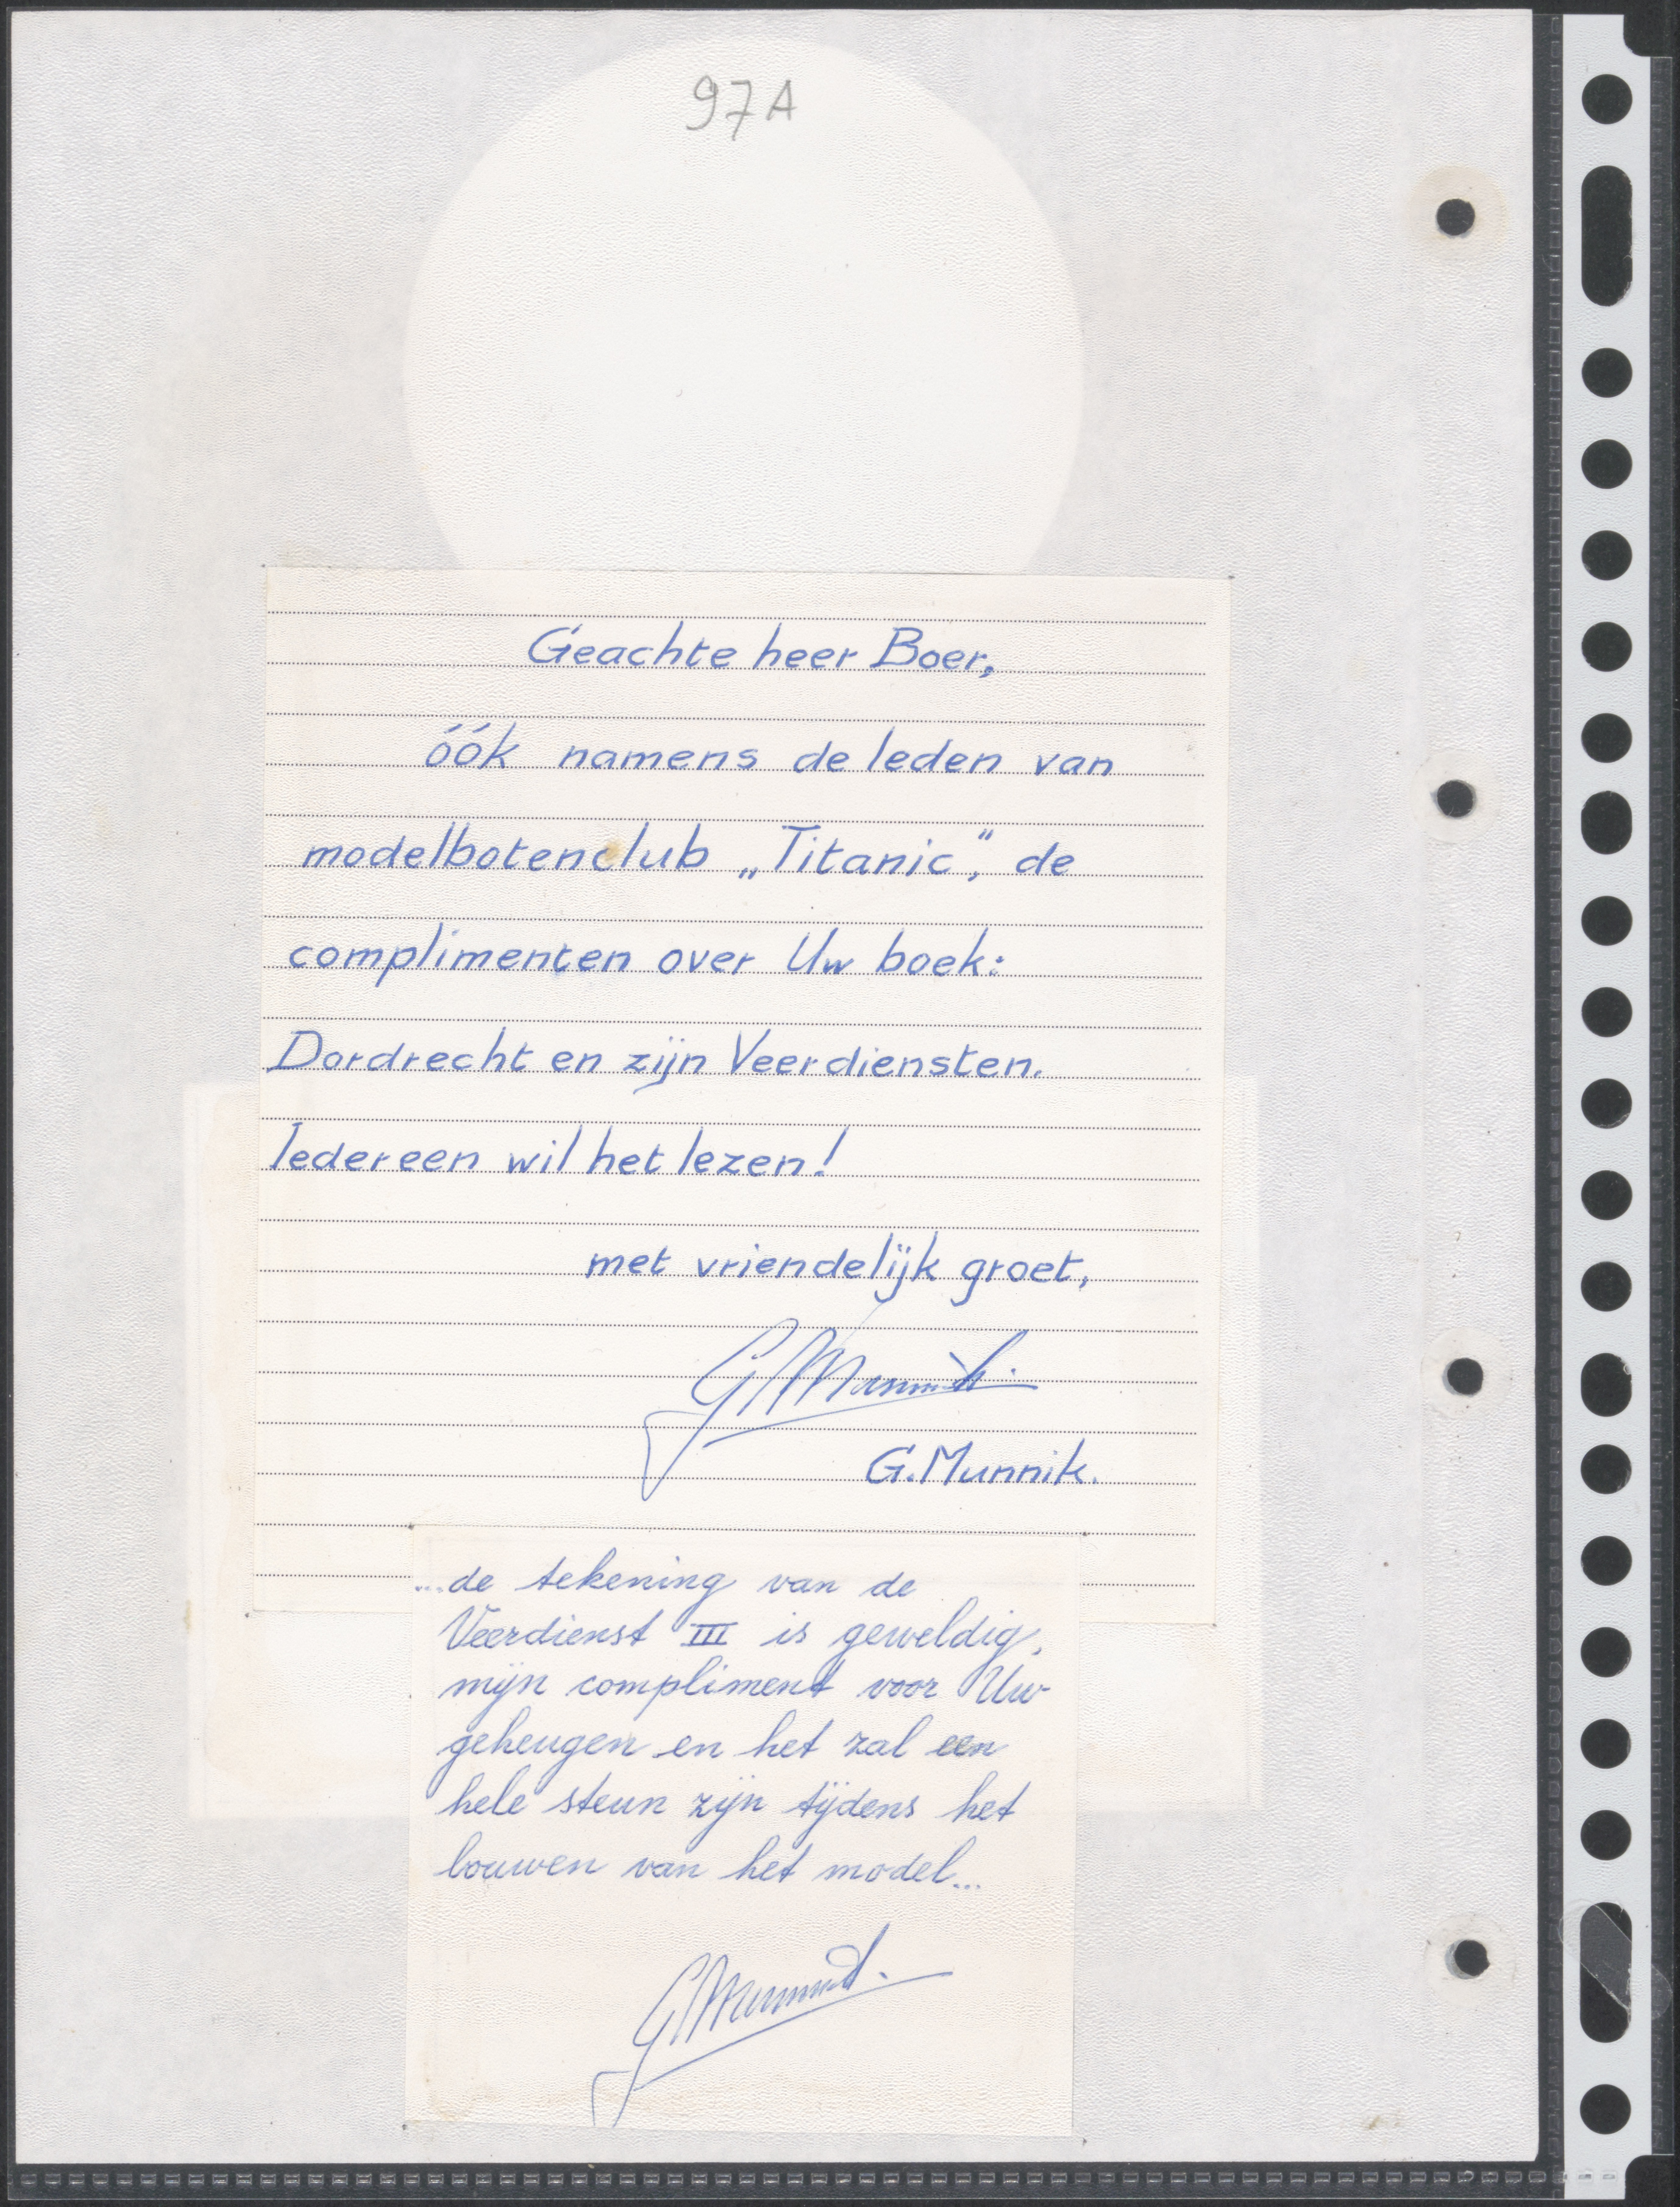 97A
Geachte heer Boer,
óók namens de leden van
modelbotenclub „Titanic”, de
complimenten over Uw boek:
Dordrecht en zijn Veerdiensten.
Iedereen wil het lezen!
met vriendelijk groet,
G Munnik.
G. Munnik.
...de tekening van de
Veerdienst III is geweldig,
mijn compliment voor Uw
geheugen en het zal een
hele steun zijn tijdens het
bouwen van het model...
G Munnik.